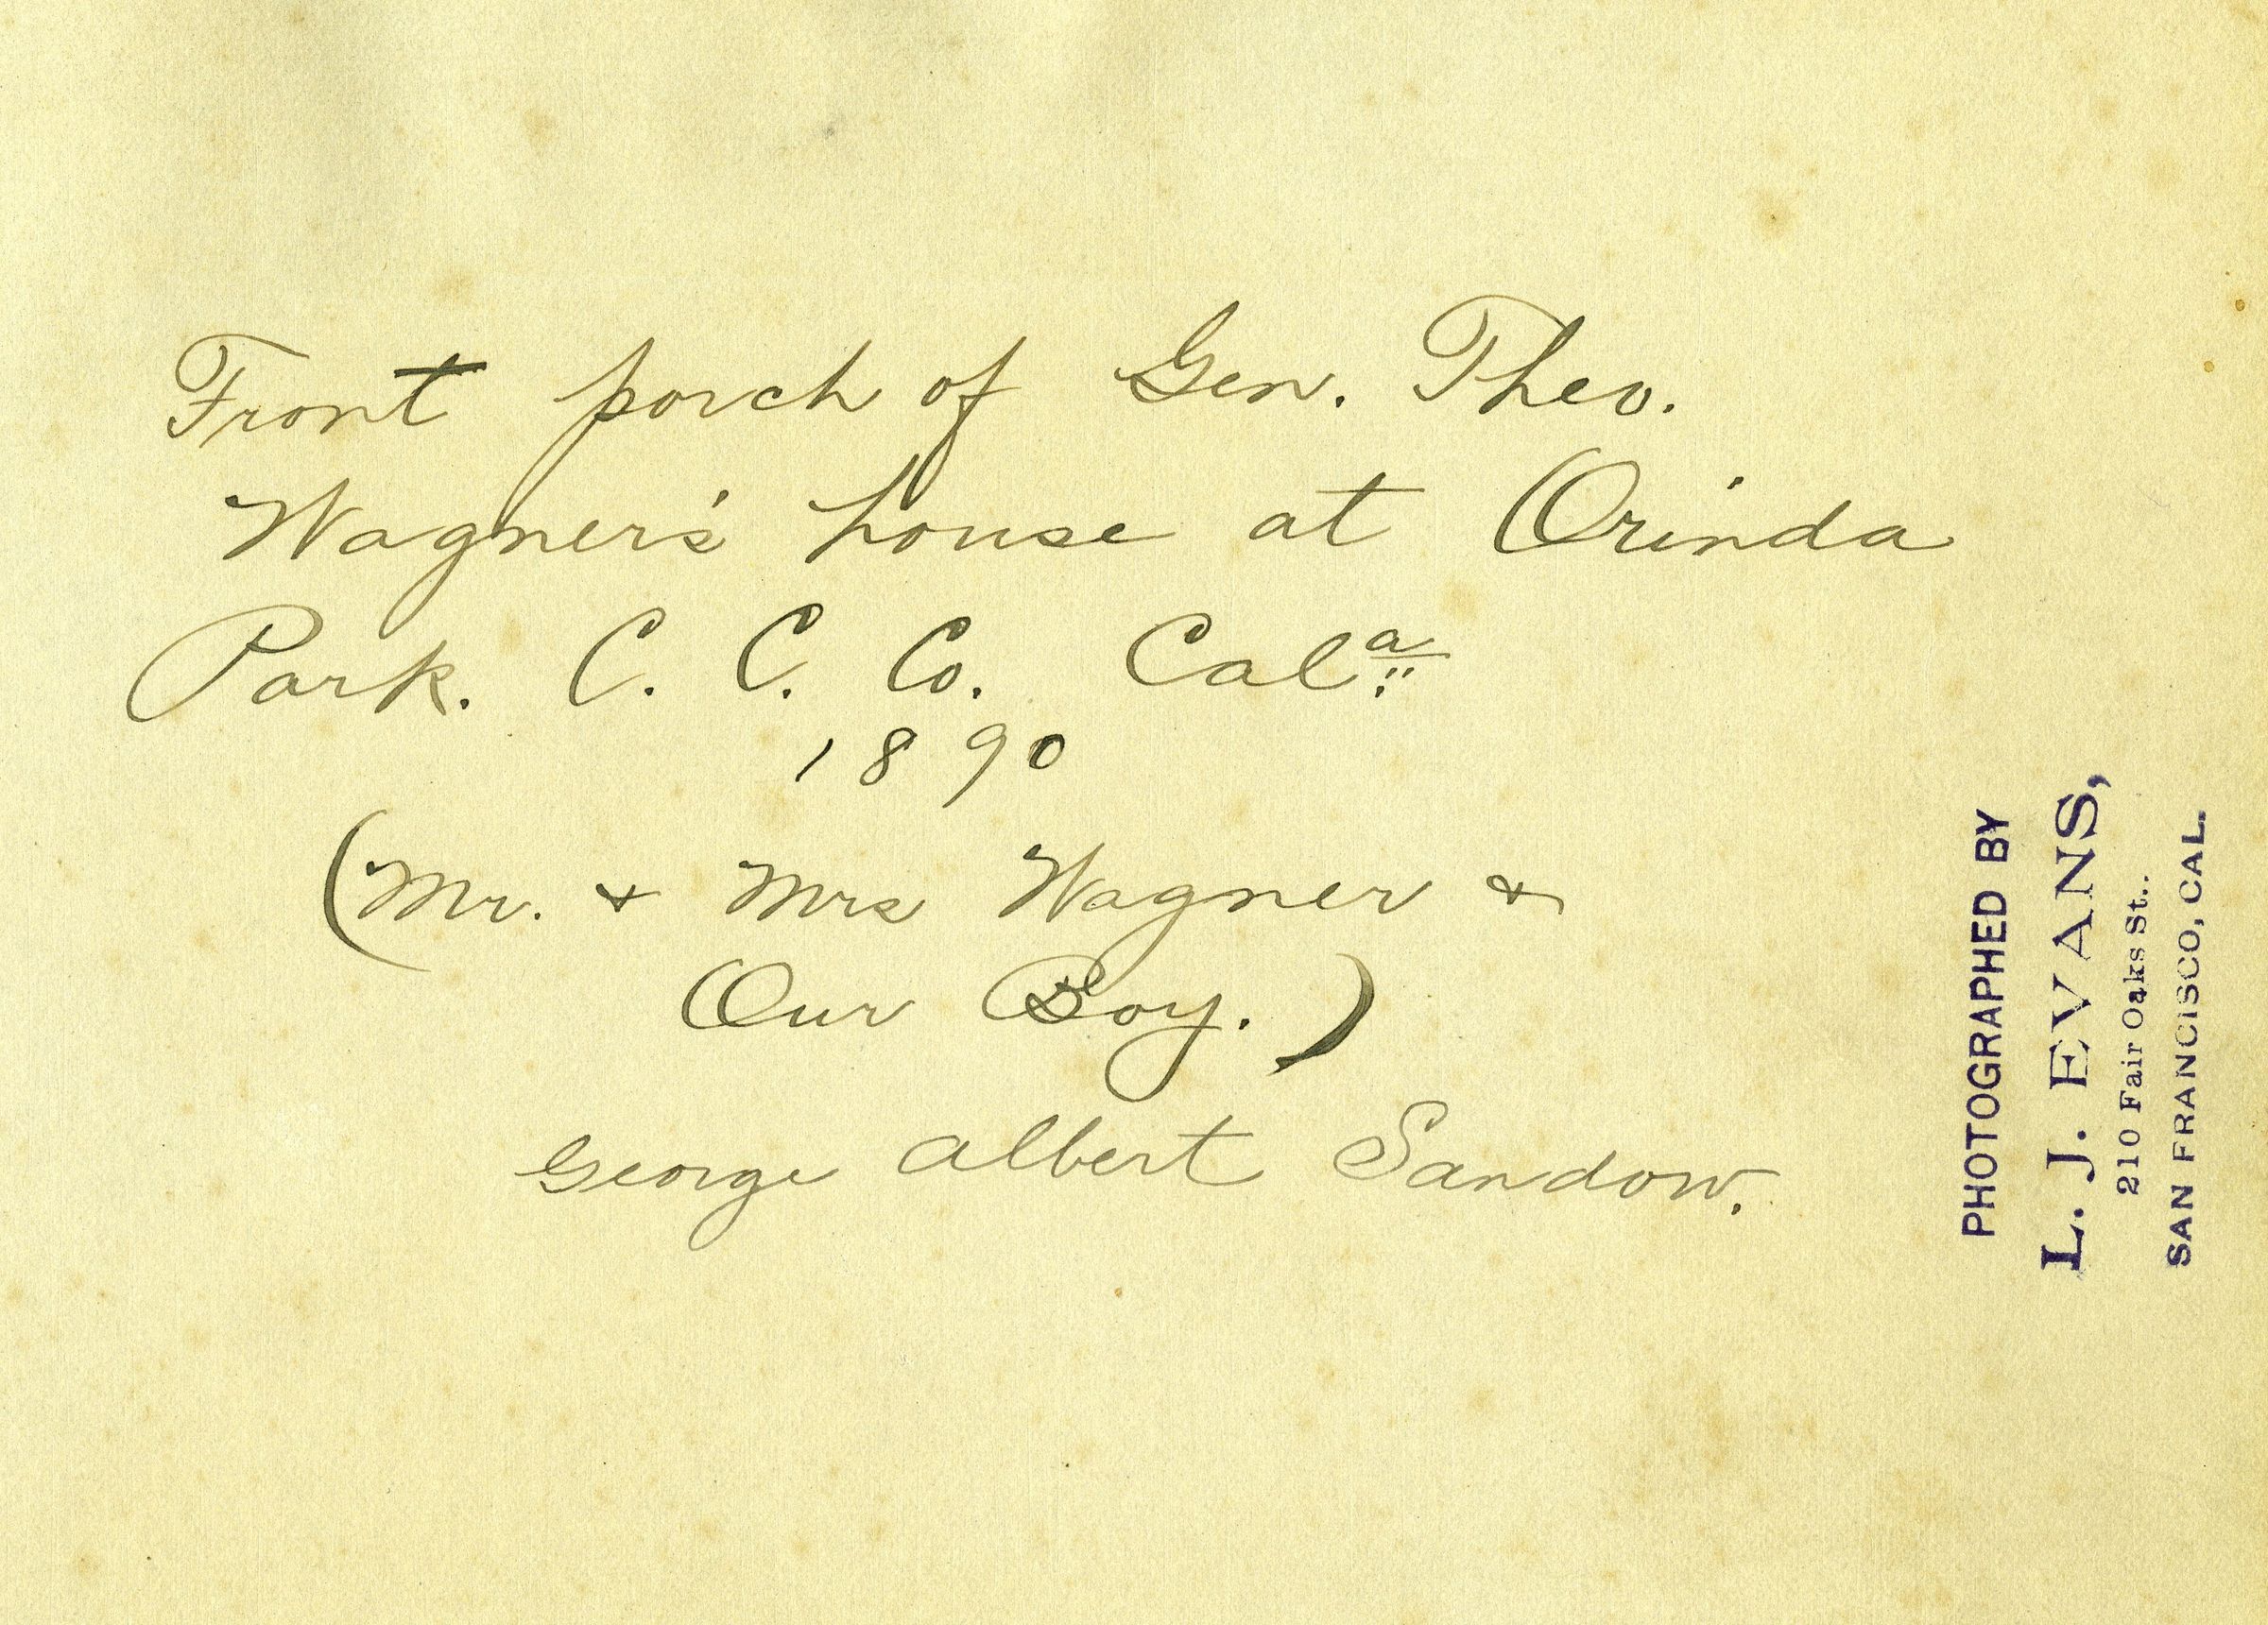 Front porch of Gen. Theo.
Wagner's house at Orinda
Park. C. C. Co. Calª
1890
(Mr. & Mrs Wagner &
Our Boy.)
George Albert Sandow.
PHOTOGRAPHED BY
L. J. EVANS,
210 Fair Oaks St..
SAN FRANCISCO, CAL.